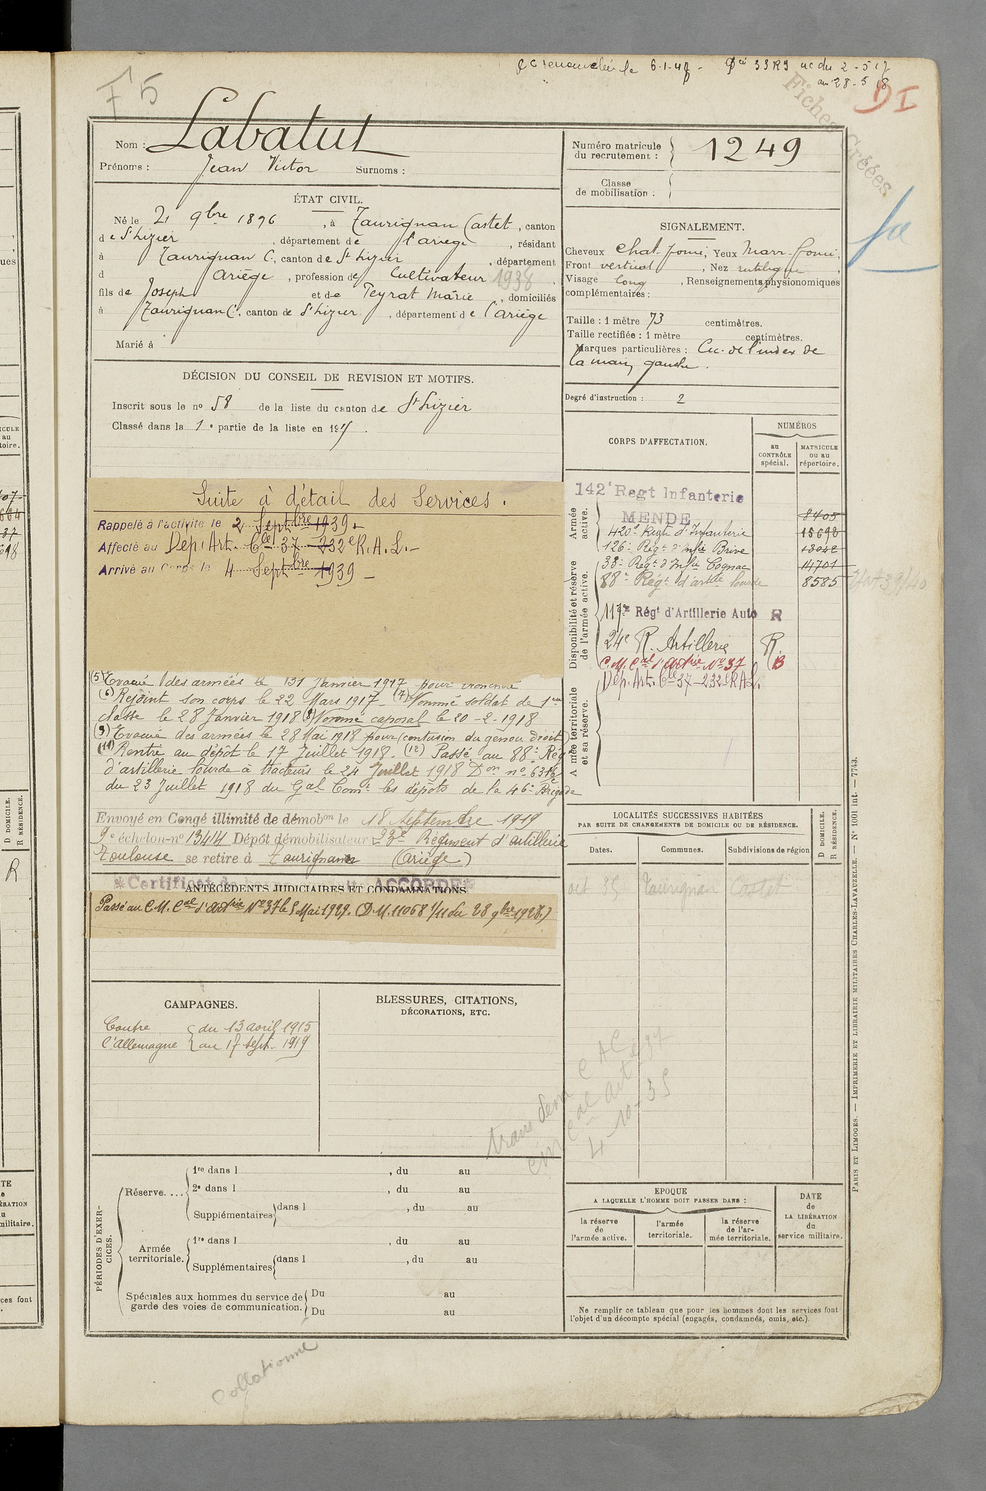 F5
Fiches Créées
DI
Nom : Labatut
Prénoms : Jean Victor Surnoms :
Numéro matricule du recrutement : 1249
Classe de mobilisation :
ÉTAT CIVIL.
Né le 21 9bre 1896, à Taurignan Castet, canton
de St Lizier, département de l'Ariège, résidant
à Taurignan C., canton de St Lizier, département
d Ariège, profession de Cultivateur 1938
fils de Joseph et de Peyrat Marie, domiciliés
à Taurignan C., canton de St Lizier, département de l'Ariège
Marié à
SIGNALEMENT.
Cheveux chat. foncé, Yeux Marr. foncé,
Front vertical, Nez rectiligne,
Visage long, Renseignements physionomiques
complémentaires :
Taille : 1 mètre 73 centimètres.
Taille rectifiée : 1 mètre centimètres.
Marques particulières : Cic. de l'index de
la main gauche.
Degré d'instruction : 2
DÉCISION DU CONSEIL DE REVISION ET MOTIFS.
Inscrit sous le no 58 de la liste du canton de St Lizier
Classé dans la 1e partie de la liste en 1915.
Suite à détail des Services.
Rappelé à l'activité le 2 Septbre 1939.
Affecté au Dép. Art. Cle 37-232e R.A.L.
Arrivé au Corps le 4 Septbre 1939
(5) Evacué des armées le 131 Janvier 1917 pour
(6) Rejoint son corps le 22 Mars 1917 - (7) Nommé soldat de 1re
classe le 28 Janvier 1918 (8) Nommé caporal le 20-2-1918
(9) Evacué des armées le 28 Mai 1918 pour (contusion du genou droit)
Rentré au dépôt le 17 Juillet 1918. (12) Passé au 88e Rég
d'artillerie lourde à tracteurs le 24 Juillet 1918 Don no
du 23 Juillet 1918 du Gal Comt les dépôts de la 46e Brigade
Envoyé en Congé illimité de démobon le 18 Septembre 1919
9e échelon - no 1344 Dépôt démobilisateur 23e Régiment d'artillerie
Toulouse se retire à Taurignan (Ariège)
ACCORDÉ
ANTÉCÉDENTS JUDICIAIRES ET CONDAMNATIONS.
Passé au C.M. Cal d'Artrie No 37 le 5 Mai 1929. (D.M. 11068 1/11 du 28 9bre 1928.)
CORPS D'AFFECTATION.
NUMÉROS
au CONTRÔLE spécial.
MATRICULE ou au répertoire.
Armée active.
142e Regt Infanterie
MENDE 8405
420e Régt d'Infanterie 15698
126e Régt d'Infie Brive
Disponibilité et réserve de l'armée active.
38e Régt d'Infie Cognac 14701
88e Régt d'artie lourde 8585
117me Régt d'Artillerie Auto R
24e R. Artillerie R.
C.M. Cal d'Artrie No 37 B
Armée territoriale et sa réserve.
Dép. Art. Cle 37-232e R.A.L.
LOCALITÉS SUCCESSIVES HABITÉES
PAR SUITE DE CHANGEMENTS DE DOMICILE OU DE RÉSIDENCE.
Dates. Communes. Subdivisions de région
D DOMICILE.
R RÉSIDENCE.
oct 35 Taurignan Castet
CAMPAGNES.
Contre l'Allemagne { du 13 avril 1915
au 17 sept. 1919
BLESSURES, CITATIONS,
DÉCORATIONS, ETC.
4-10-35
PÉRIODES D'EXERCICES.
Réserve.... 1re dans l , du au
2e dans l , du au
Supplémentaires dans l , du au
Armée territoriale. 1re dans l , du au
Supplémentaires dans l , du au
Spéciales aux hommes du service de garde des voies de communication. Du au
Du au
EPOQUE
A LAQUELLE L'HOMME DOIT PASSER DANS :
la réserve de l'armée active.
l'armée territoriale.
la réserve de l'armée territoriale.
DATE de LA LIBÉRATION du service militaire.
Ne remplir ce tableau que pour les hommes dont les services font
l'objet d'un décompte spécial (engagés, condamnés, omis, etc.).
PARIS ET LIMOGES. — IMPRIMERIE ET LIBRAIRIE MILITAIRES CHARLES-LAVAUZELLE. — No 1001 int. — 7743.
Collationné